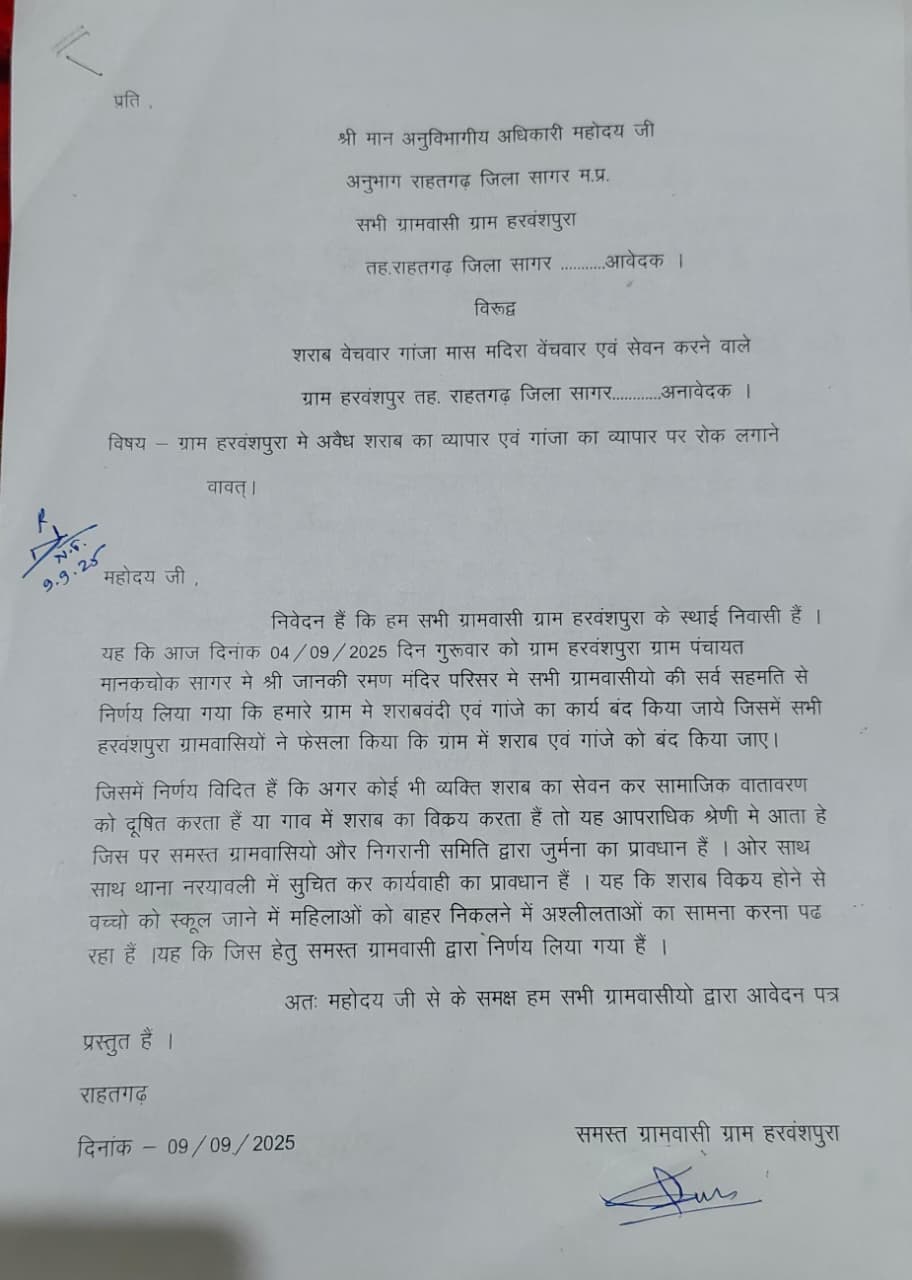 प्रति ,
श्री मान अनुविभागीय अधिकारी महोदय जी
अनुभाग राहतगढ़ जिला सागर म.प्र.
सभी ग्रामवासी ग्राम हरवंशपुरा
तह.राहतगढ़ जिला सागर ...........आवेदक ।
विरूद्व
शराब वेचवार गांजा मास मदिरा वेंचवार एवं सेवन करने वाले
ग्राम हरवंशपुर तह. राहतगढ़ जिला सागर............अनावेदक ।
विषय – ग्राम हरवंशपुरा मे अवैध शराब का व्यापार एवं गांजा का व्यापार पर रोक लगाने
वावत्।
R
9.9.25
महोदय जी ,
निवेदन हैं कि हम सभी ग्रामवासी ग्राम हरवंशपुरा के स्थाई निवासी हैं ।
यह कि आज दिनांक 04/09/2025 दिन गुरूवार को ग्राम हरवंशपुरा ग्राम पंचायत
मानकचोक सागर मे श्री जानकी रमण मंदिर परिसर मे सभी ग्रामवासीयो की सर्व सहमति से
निर्णय लिया गया कि हमारे ग्राम मे शराबवंदी एवं गांजे का कार्य बंद किया जाये जिसमें सभी
हरवंशपुरा ग्रामवासियों ने फेसला किया कि ग्राम में शराब एवं गांजे को बंद किया जाए।
जिसमें निर्णय विदित हैं कि अगर कोई भी व्यक्ति शराब का सेवन कर सामाजिक वातावरण
को दूषित करता हैं या गाव में शराब का विक्रय करता हैं तो यह आपराधिक श्रेणी मे आता हे
जिस पर समस्त ग्रामवासियो और निगरानी समिति द्वारा जुर्मना का प्रावधान हैं । ओर साथ
साथ थाना नरयावली में सुचित कर कार्यवाही का प्रावधान हैं । यह कि शराब विक्रय होने से
वच्चो को स्कूल जाने में महिलाओं को बाहर निकलने में अश्लीलताओं का सामना करना पढ
रहा हैं ।यह कि जिस हेतु समस्त ग्रामवासी द्वारा निर्णय लिया गया हैं ।
अतः महोदय जी से के समक्ष हम सभी ग्रामवासीयो द्वारा आवेदन पत्र
प्रस्तुत हैं ।
राहतगढ़
दिनांक – 09/09/2025
समस्त ग्रामवासी ग्राम हरवंशपुरा